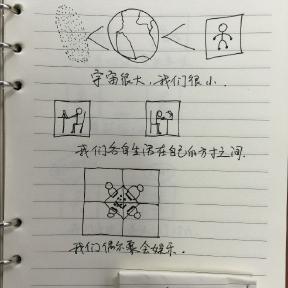 宇宙很大，我们很小．
我们各自生活在自己的方寸之间．
我们偶尔聚会娱乐．